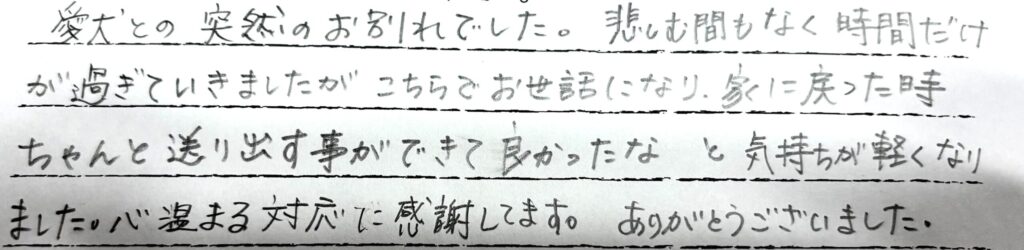 愛犬との突然のお別れでした。悲しむ間もなく時間だけ
が過ぎていきましたが こちらでお世話になり、家に戻った時
ちゃんと送り出す事ができて良かったな と気持ちが軽くなり
ました。心温まる対応に感謝してます。 ありがとうございました。